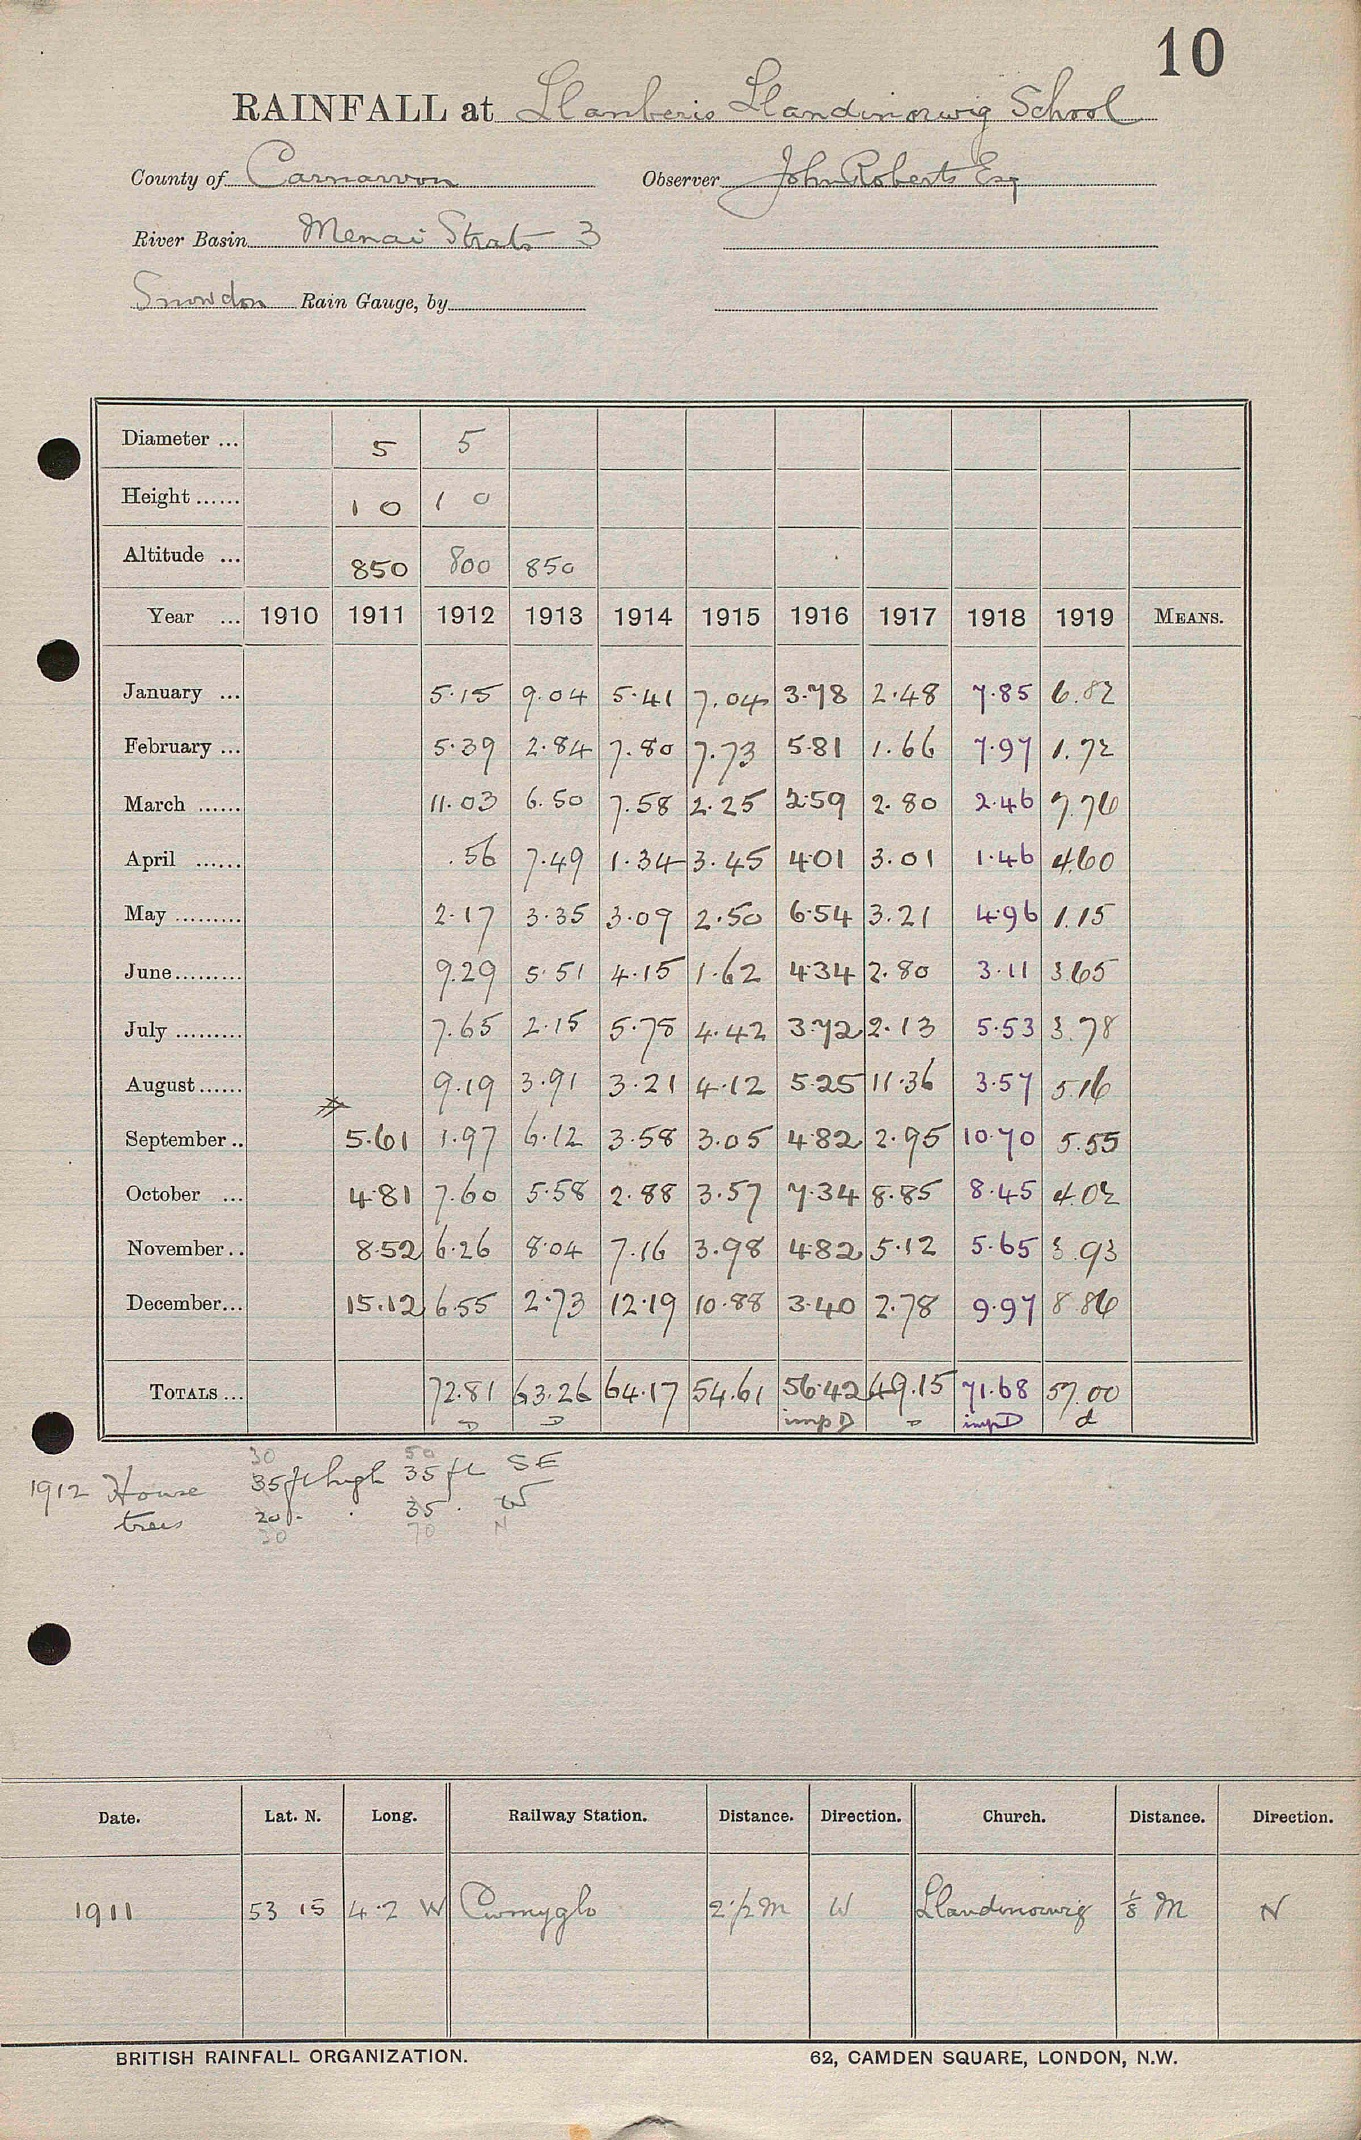 10
RAINFALL at Llanberis Llandinorwig School
County of Carnarvon Observer John Roberts Esq
River Basin Menai Strats 3
Snowdon Rain Gauge, by
Diameter ... 5 5
Height ...... 1 0 1 0
Altitude ... 850 800 850
Year ... 1910 1911 1912 1913 1914 1915 1916 1917 1918 1919 MEANS.
January ... 5.15 9.04 5.41 7.04 3.78 2.48 7.85 6.82
February ... 5.39 2.84 7.80 7.73 5.81 1.66 7.97 1.72
March ...... 11.03 6.50 7.58 2.25 2.59 2.80 2.46 9.76
April ...... .56 7.49 1.34 3.45 4.01 3.01 1.46 4.60
May ......... 2.17 3.35 3.09 2.50 6.54 3.21 4.96 1.15
June ......... 9.29 5.51 4.15 1.62 4.34 2.80 3.11 3.65
July ......... 7.65 2.15 5.78 4.42 3.72 2.13 5.53 3.78
August ...... 9.19 3.91 3.21 4.12 5.25 11.36 3.57 5.16
September .. 5.61 1.97 6.12 3.58 3.05 4.82 2.95 10.70 5.55
October ... 4.81 7.60 5.58 2.88 3.57 7.34 8.85 8.45 4.02
November .. 8.52 6.26 8.04 7.16 3.98 4.82 5.12 5.65 3.93
December ... 15.12 6.55 2.73 12.19 10.88 3.40 2.78 9.97 8.86
TOTALS ... 72.81 63.26 64.17 54.61 56.42 49.15 71.68 57.00
D D imp D D imp D d
30 50
1912 House 35 ft high 35 ft SE
trees 20 . . 35 . W
30 70 N
Date. Lat. N. Long. Railway Station. Distance. Direction. Church. Distance. Direction.
1911 53 15 4.2 W Cwmyglo 2 1/2 M W Llandinorwig 1/8 M N
BRITISH RAINFALL ORGANIZATION. 62, CAMDEN SQUARE, LONDON, N.W.